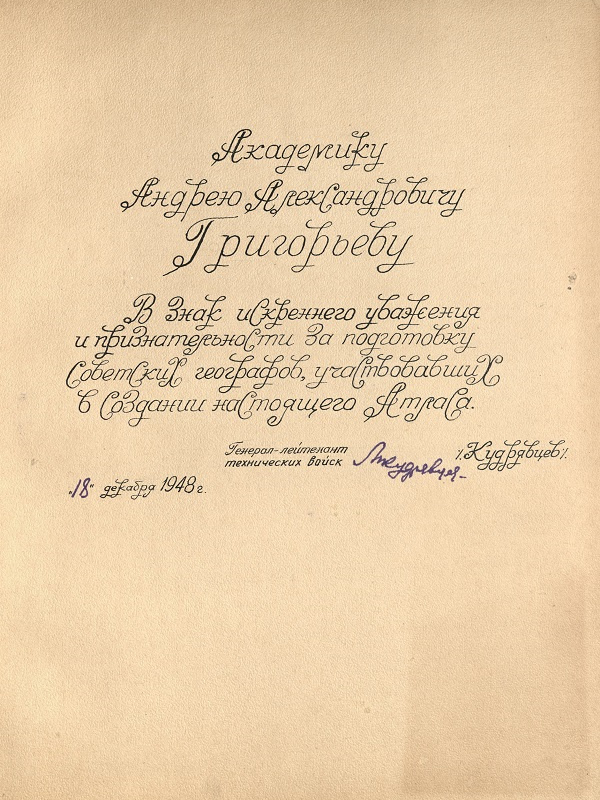 Академику
Андрею Александровичу
Григорьеву
В знак искреннего уважения
и признательности за подготовку
советских географов, участвовавших
в создании настоящего Атласа.
Генерал-лейтенант
технических войск
Мкудрявцев
/Кудрявцев/.
„18“ декабря 1948 г.